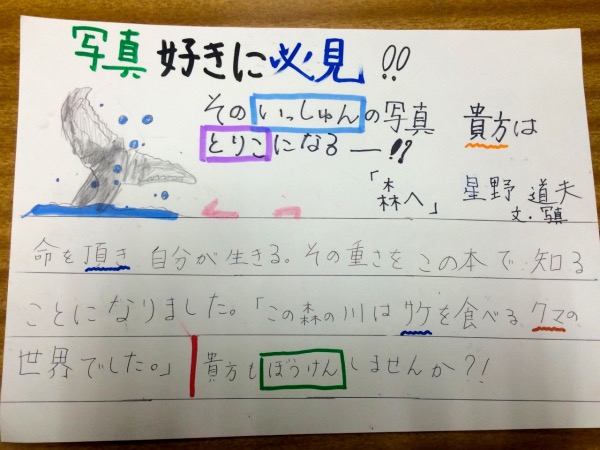 写真好きに必見!!
そのいっしゅんの写真 貴方は
とりこになるー!?
「森へ」 星野 道夫
文・写真
命を頂き 自分が生きる。その重さをこの本で知る
ことになりました。「この森の川はサケを食べるクマの
世界でした。」 貴方もぼうけんしませんか?!